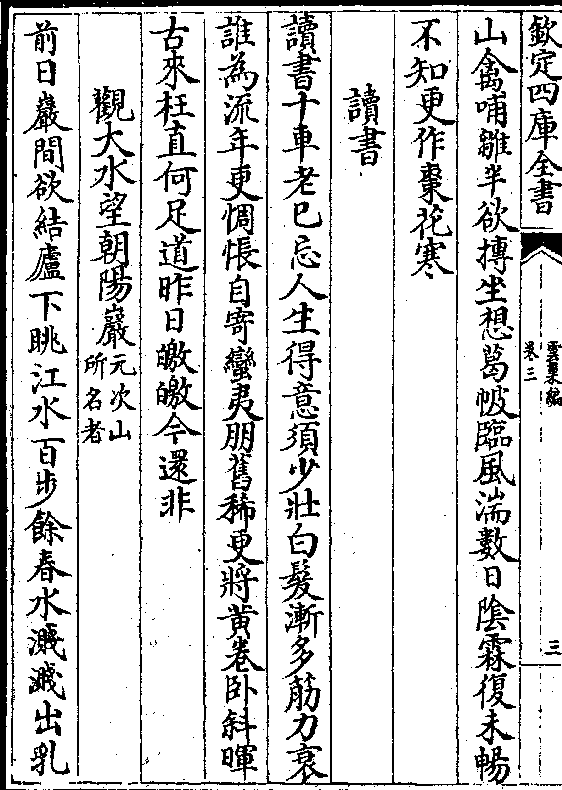 欽定四庫全書
雲巢編
卷三
三
山禽哺雛半欲摶坐想葛帔臨風湍數日陰霖復未暢
不知更作棗花寒
讀書
讀書十車老已忘人生得意須少壯白髮漸多筋力衰
誰為流年更惆悵自寄蠻夷朋舊稀更將黄卷卧斜暉
古來枉直何足道昨日皦皦今還非
觀大水望朝陽巖元次山所名者
前日巖間欲結廬下眺江水百步餘春水濺濺出乳